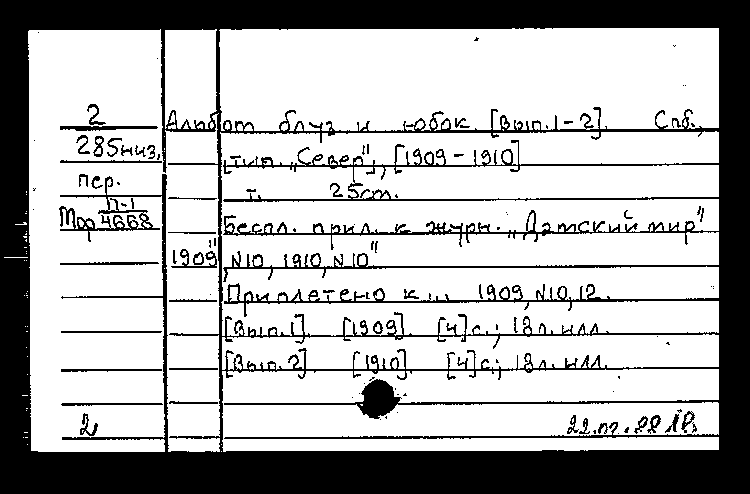 2
Альбом блуз и юбок [Вып.1-2]. Спб.,
285низ. [тип. „Север"], [1909-1910]
пер. т. 25cm.
П-1
Тор 4668 Беспл. прил. к журн. „Дамский мир"
1909", N10, 1910, N10"
Приплетено к... 1909, N10, 12.
[Вып.1]. [1909]. [4]с.; 18л. илл.
[Вып.2]. [1910]. [4]с.; 18л. илл.
2